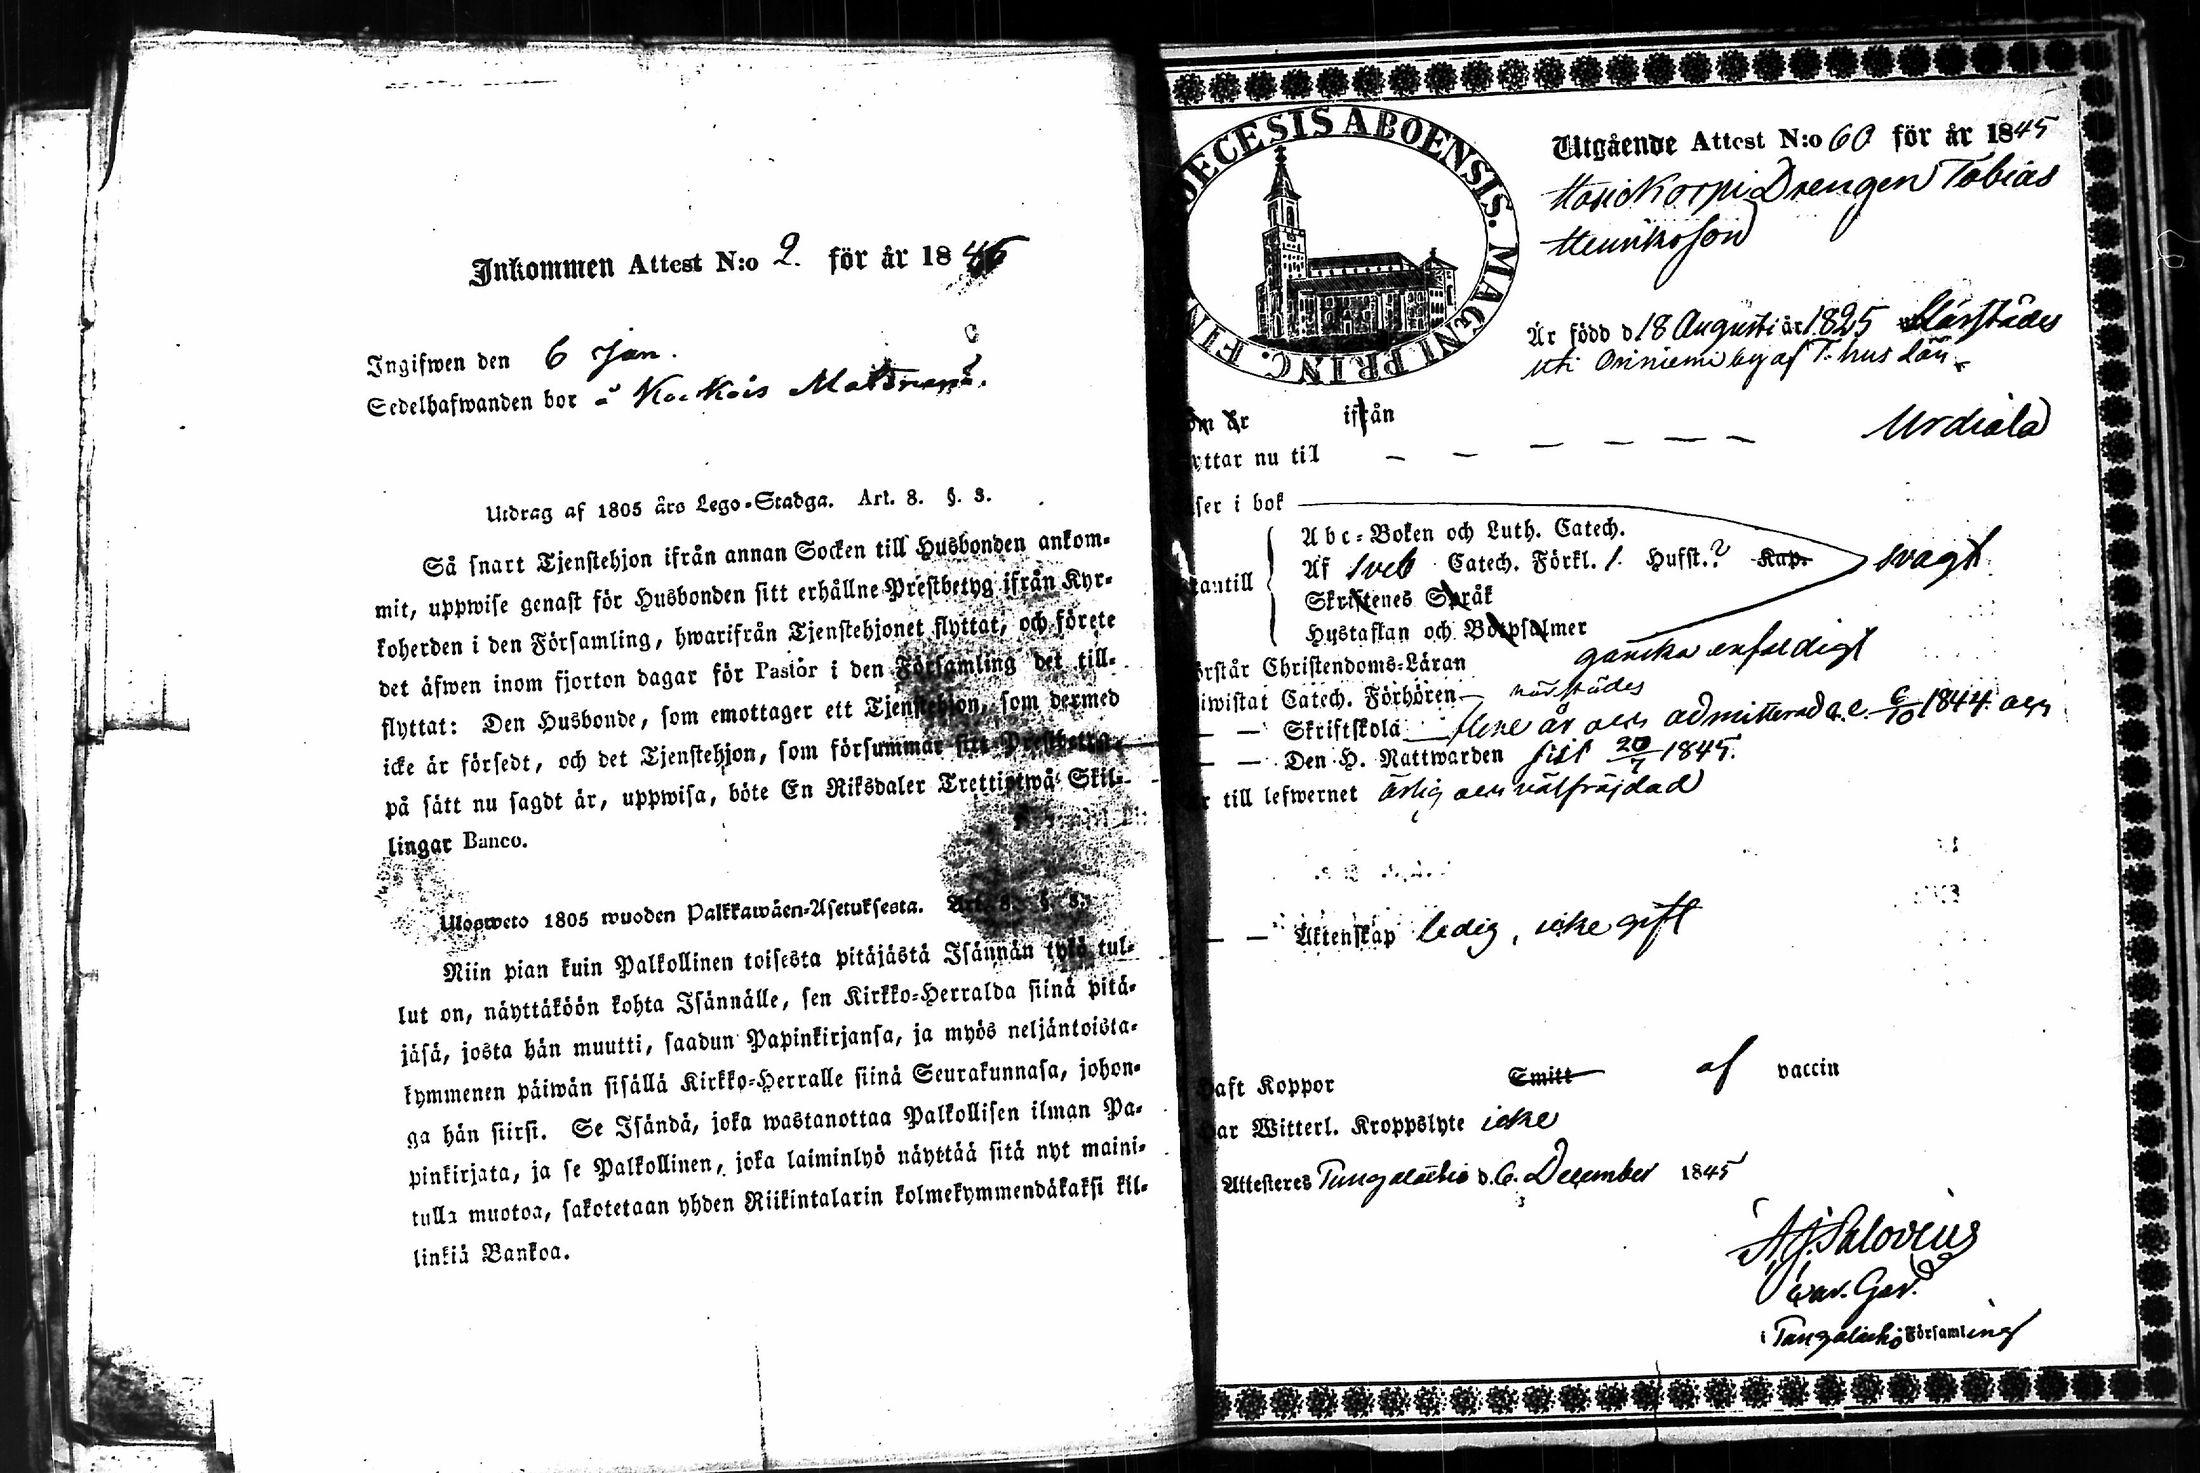 Inkommen Attest N:o 2. för år 1846
Ingifwen den 6 Jan.
Sedelhafwanden bor å
Utdrag af 1805 års Lego-Stadga. Art. 8. §. 3.
Så snart Tjenstehjon ifrån annan Socken till Husbonden ankom-
mit, uppwise genast för Husbonden sitt erhållne Prestbetyg ifrån Kyr-
koherden i den Församling, hwarifrån Tjenstehjonet flyttat, och förete
det äfwen inom fjorton dagar för Pastor i den Församling det till-
flyttat: Den Husbonde, som emottager ett Tjenstehjon, som dermed
icke är försedt, och det Tjenstehjon, som försummar sitt Prestbetyg,
på sätt nu sagdt är, uppwisa, böte En Riksdaler Trettiotwå Skil-
lingar Banco.
Ulosweto 1805 wuoden Palkkawäen-Asetuksesta. Art. 8. §. 3.
Niin pian kuin Palkollinen toisesta pitäjästä Isännän tykö tul-
lut on, näyttäköön kohta Isännälle, sen Kirkko-Herralda siinä pitä-
jäsä, josta hän muutti, saadun Papinkirjansa, ja myös neljäntoista-
kymmenen päiwän sisällä Kirkko-Herralle siinä Seurakunnasa, johon-
ga hän siirsi. Se Isändä, joka wastanottaa Palkollisen ilman Pa-
pinkirjata, ja se Palkollinen, joka laiminlyö näyttää sitä nyt maini-
tulla muotoa, sakotetaan yhden Riikintalarin kolmekymmendäkaksi kil-
linkiä Bankoa.
DECESIS ABOENSIS. MAGNI PRINC. FIN
Utgående Attest N:o 60 för år 1845
Drengen Tobias
Henriksson
Är född d. 18 Augusti år 1825 härstädes
uti by af T. hus Län.
om är ifrån
yttar nu til — — — — — — Urdiala
ser i bok
Abc-Boken och Luth. Catech.
Af Sveb Catech. Förkl. 1. Husst. 2 Kap. svagt
antill
Skriftenes Språk
Hustaflan och Botpsalmer
örstår Christendoms-Läran ganska enfaldigt
iwistat Catech. Förhören — härstädes
— — Skriftskola flere år och admitterad 6/10 1844 och
— — Den H. Nattwarden sist 20/7 1845.
r till lefwernet ärlig och välfräjdad
— — Äktenskap ledig, icke gift
aft Koppor Smitt af vaccin
ar Witterl. Kroppslyte icke
Attesteres Tungelathio d. 6. December 1845
i Församling